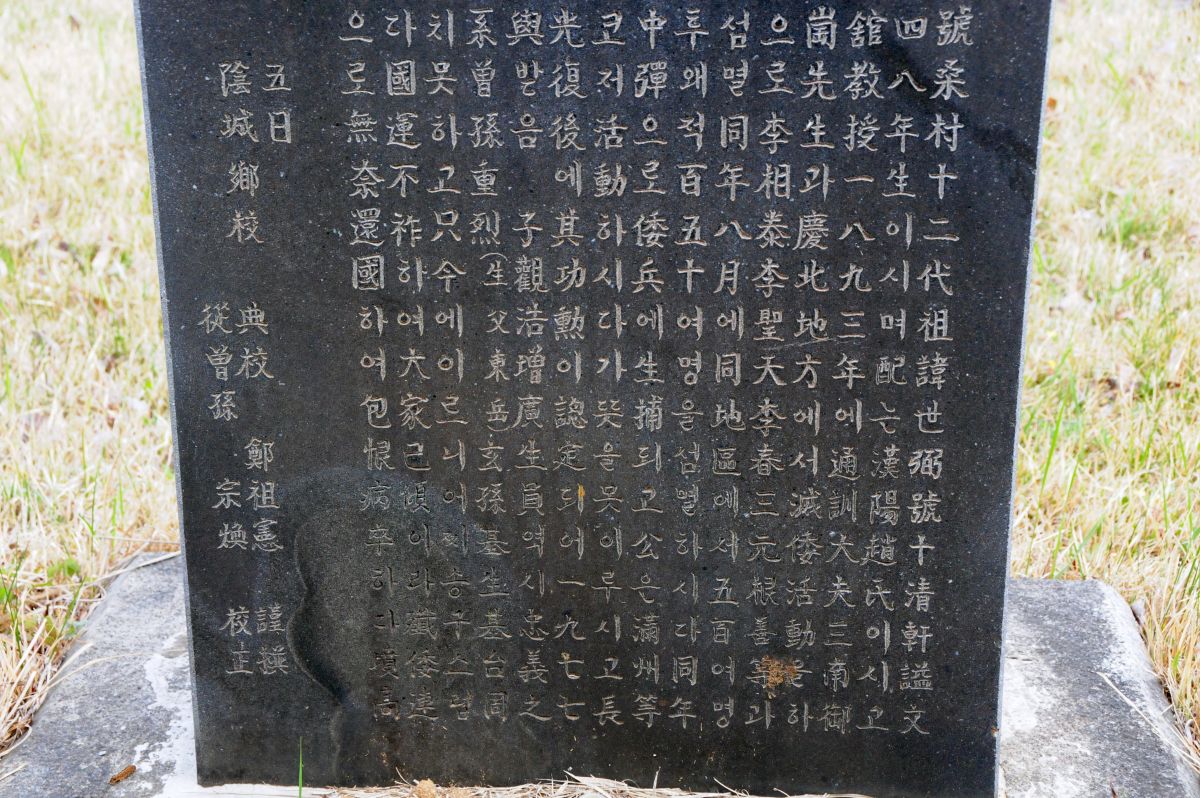 號桑村十二代祖諱世弼號十淸軒諡文
四八年生이시며配는漢陽趙氏이시고
舘教授一八九三年에通訓大夫三南御
崗先生과慶北地方에서滅倭活動을하
으로李相泰李聖天李春三元根善等과
섬멸同年八月에同地區에서五百여명
투왜적百五十여명을섬멸하시다同年
中彈으로倭兵에生捕되고公은滿州等
코저活動하시다가뜻을못이루시고長
光復後에其功勲이認定되어一九七七
與받음 子觀浩增廣生員역시忠義之
系曾孫重烈(生父東岳玄孫基生基台同
치못하고只今에이르니여
다國運不祚하여大家已傾이라殲倭運
으로無奈還國하여包恨病卒하다墳高
五日
陰城鄕校 典校 鄭祖憲 謹撰
從曾孫 宗煥 校主